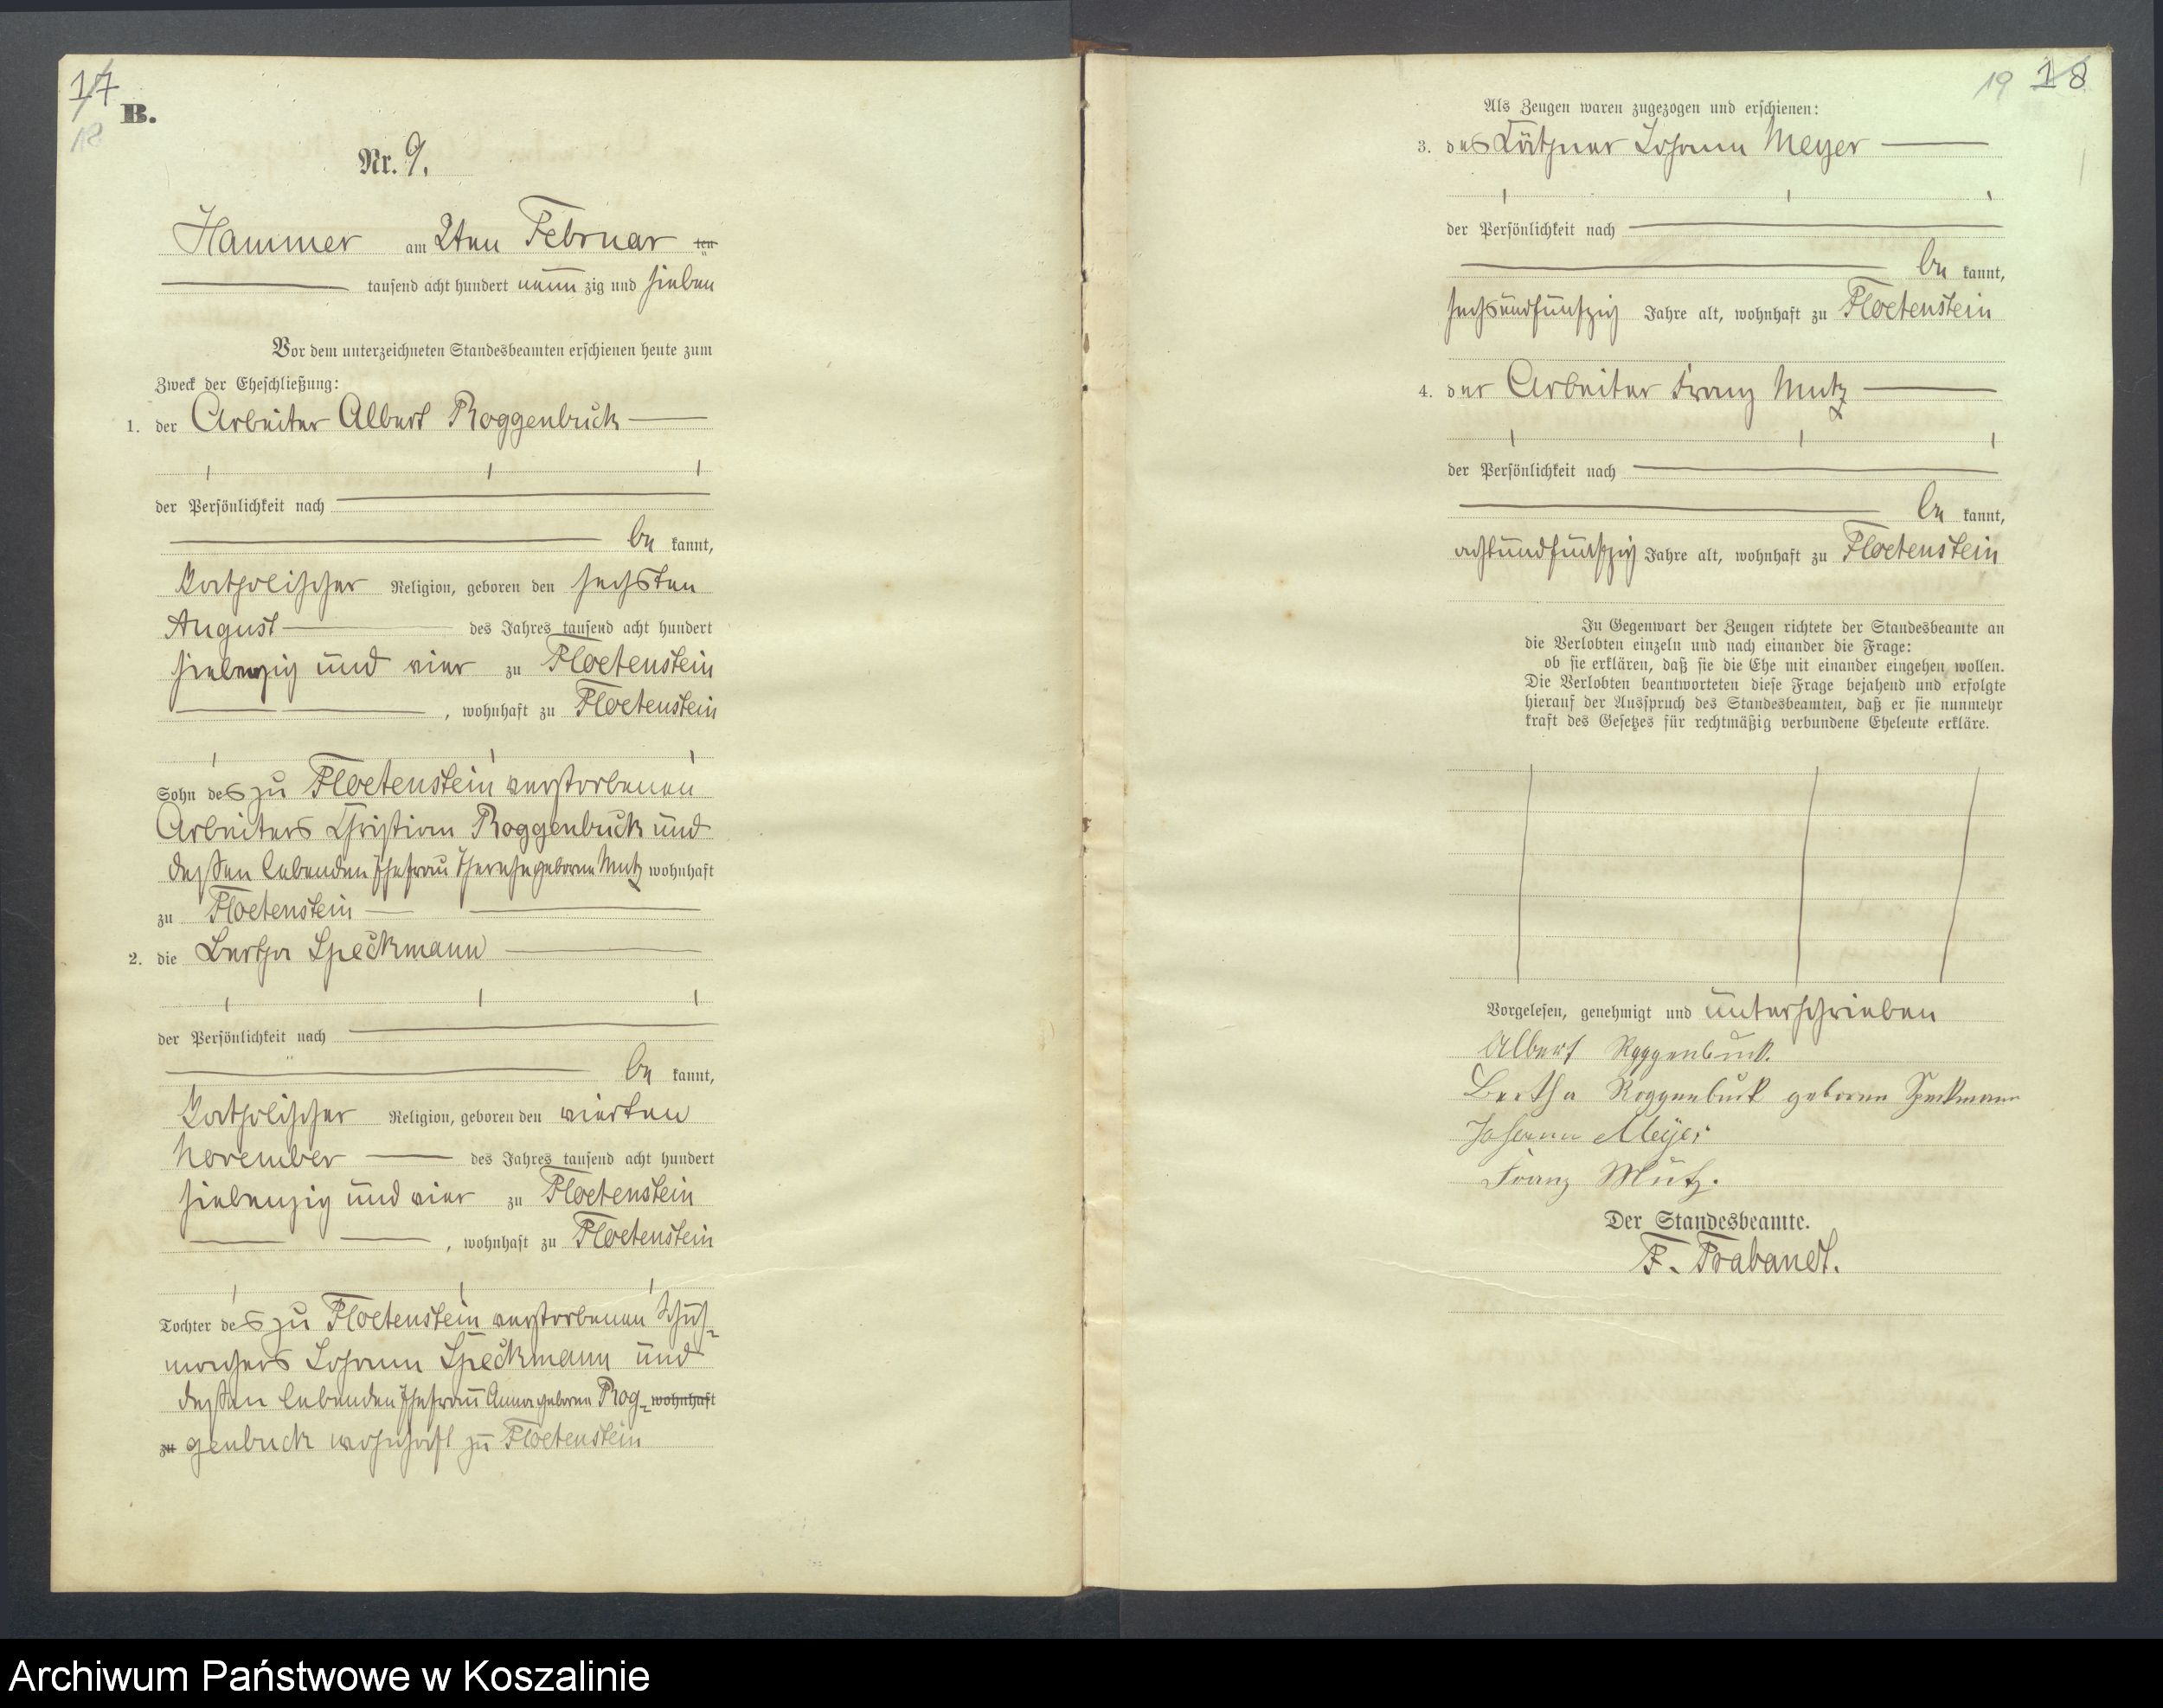 17
18
B.
Nr. 9.
Hammer am 2ten Februar ten
tausend acht hundert neun zig und sieben
Vor dem unterzeichneten Standesbeamten erschienen heute zum
Zweck der Eheschließung:
1. der Arbeiter Albert Roggenbuck
der Persönlichkeit nach
be kannt,
katholischer Religion, geboren den sechsten
August des Jahres tausend acht hundert
siebenzig und vier zu Floetenstein
, wohnhaft zu Floetenstein
Sohn des zu Floetenstein verstorbenen
Arbeiters Christian Roggenbuck und
dessen lebenden Ehefrau Therese geborne Mutz wohnhaft
zu Floetenstein
2. die Bertha Speckmann
der Persönlichkeit nach
be kannt,
katholischer Religion, geboren den vierten
November des Jahres tausend acht hundert
siebenzig und vier zu Floetenstein
, wohnhaft zu Floetenstein
Tochter des zu Floetenstein verstorbenen Schuh-
machers Johann Speckmann und
dessen lebenden Ehefrau Anna geborne Rog- wohnhaft
zu genbuck wohnhaft zu Floetenstein
19 18
Als Zeugen waren zugezogen und erschienen:
3. des Käthner Johann Meyer
der Persönlichkeit nach
be kannt,
sechsundfünfzig Jahre alt, wohnhaft zu Floetenstein
4. der Arbeiter Franz Mutz
der Persönlichkeit nach
be kannt,
achtundfünfzig Jahre alt, wohnhaft zu Floetenstein
In Gegenwart der Zeugen richtete der Standesbeamte an
die Verlobten einzeln und nach einander die Frage:
ob sie erklären, daß sie die Ehe mit einander eingehen wollen.
Die Verlobten beantworteten diese Frage bejahend und erfolgte
hierauf der Ausspruch des Standesbeamten, daß er sie nunmehr
kraft des Gesetzes für rechtmäßig verbundene Eheleute erkläre.
Vorgelesen, genehmigt und unterschrieben
Albert Roggenbuck.
Bertha Roggenbuck geborene Speckmann
Johann Meyer
Franz Mutz.
Der Standesbeamte.
F. Trabandt.
Archiwum Państwowe w Koszalinie